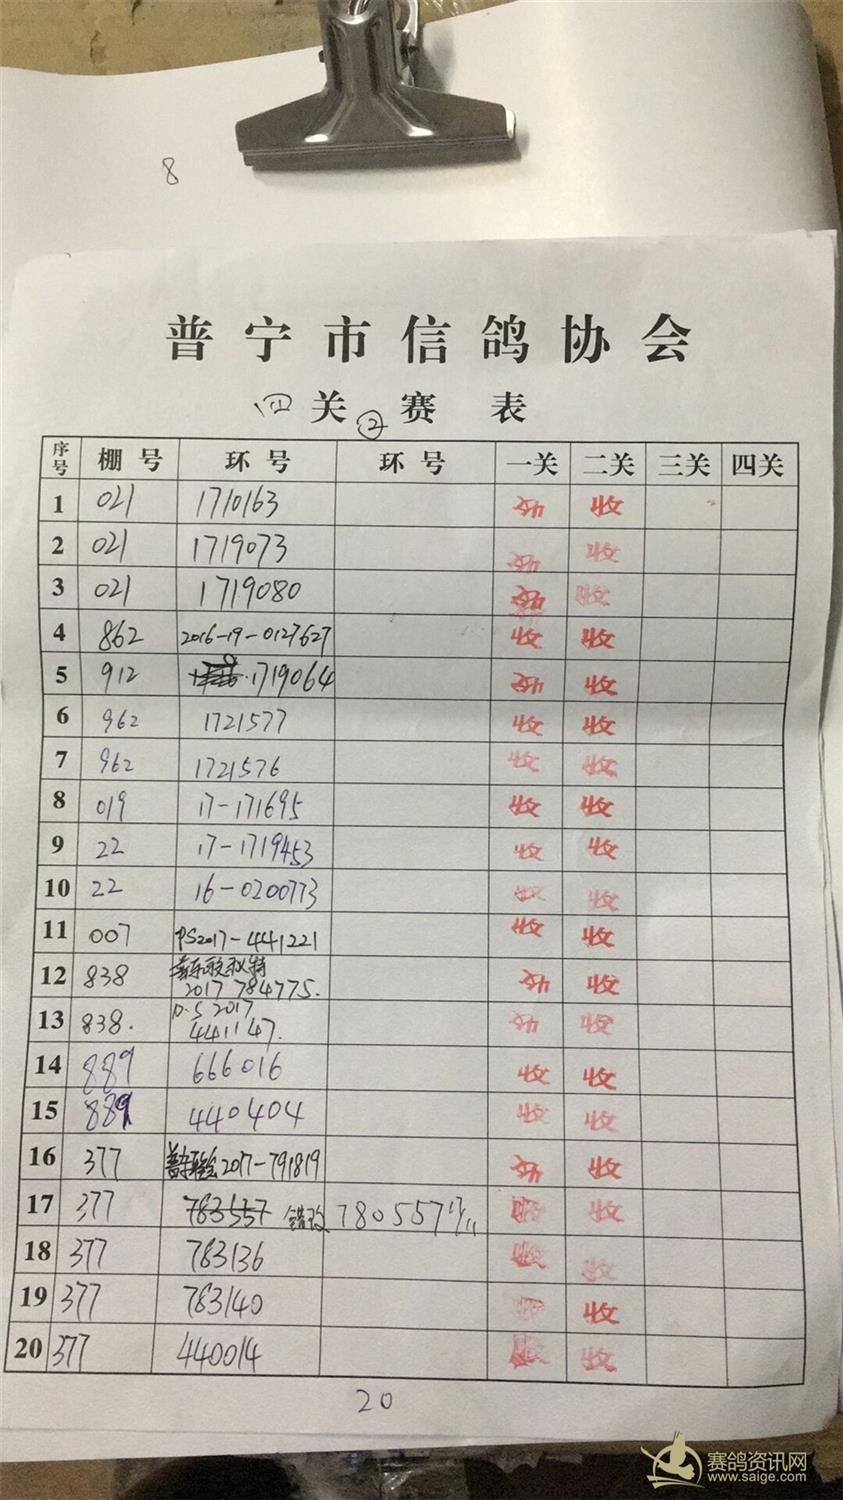 8
普宁市信鸽协会
四关②赛表
序号 棚号 环号 环号 一关 二关 三关 四关
1 021 1710163 收 收
2 021 1719073 收 收
3 021 1719080 收 收
4 862 2016-19-0127627 收 收
5 912 1719064 收 收
6 962 1721577 收 收
7 962 1721576 收 收
8 019 17-171695 收 收
9 22 17-1719453 收 收
10 22 16-0200773 收 收
11 007 PS2017-441221 收 收
12 838 2017 784775. 收 收
13 838. P.S 2017 441147. 收 收
14 889 666016 收 收
15 889 440404 收 收
16 377 2017-791819 收 收
17 377 783557 错改 780557 收 收
18 377 783136 收 收
19 377 783140 收 收
20 377 440014 收 收
20
赛鸽资讯网
www.saige.com